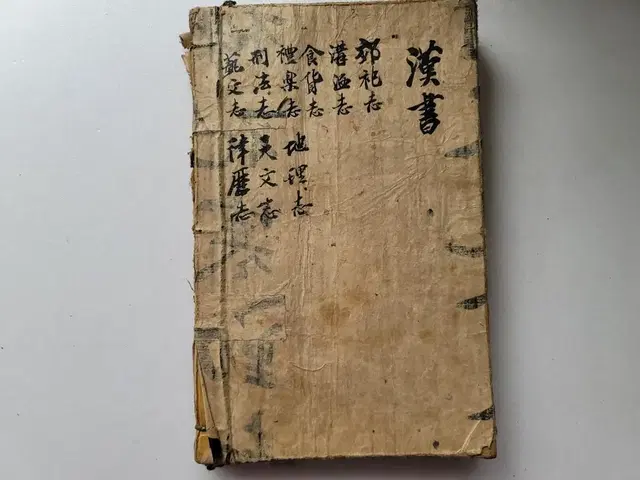 漢書
郊祀志
溝洫志
食貨志
禮楽志
刑法志
藝文志
地理志
天文志
律曆志